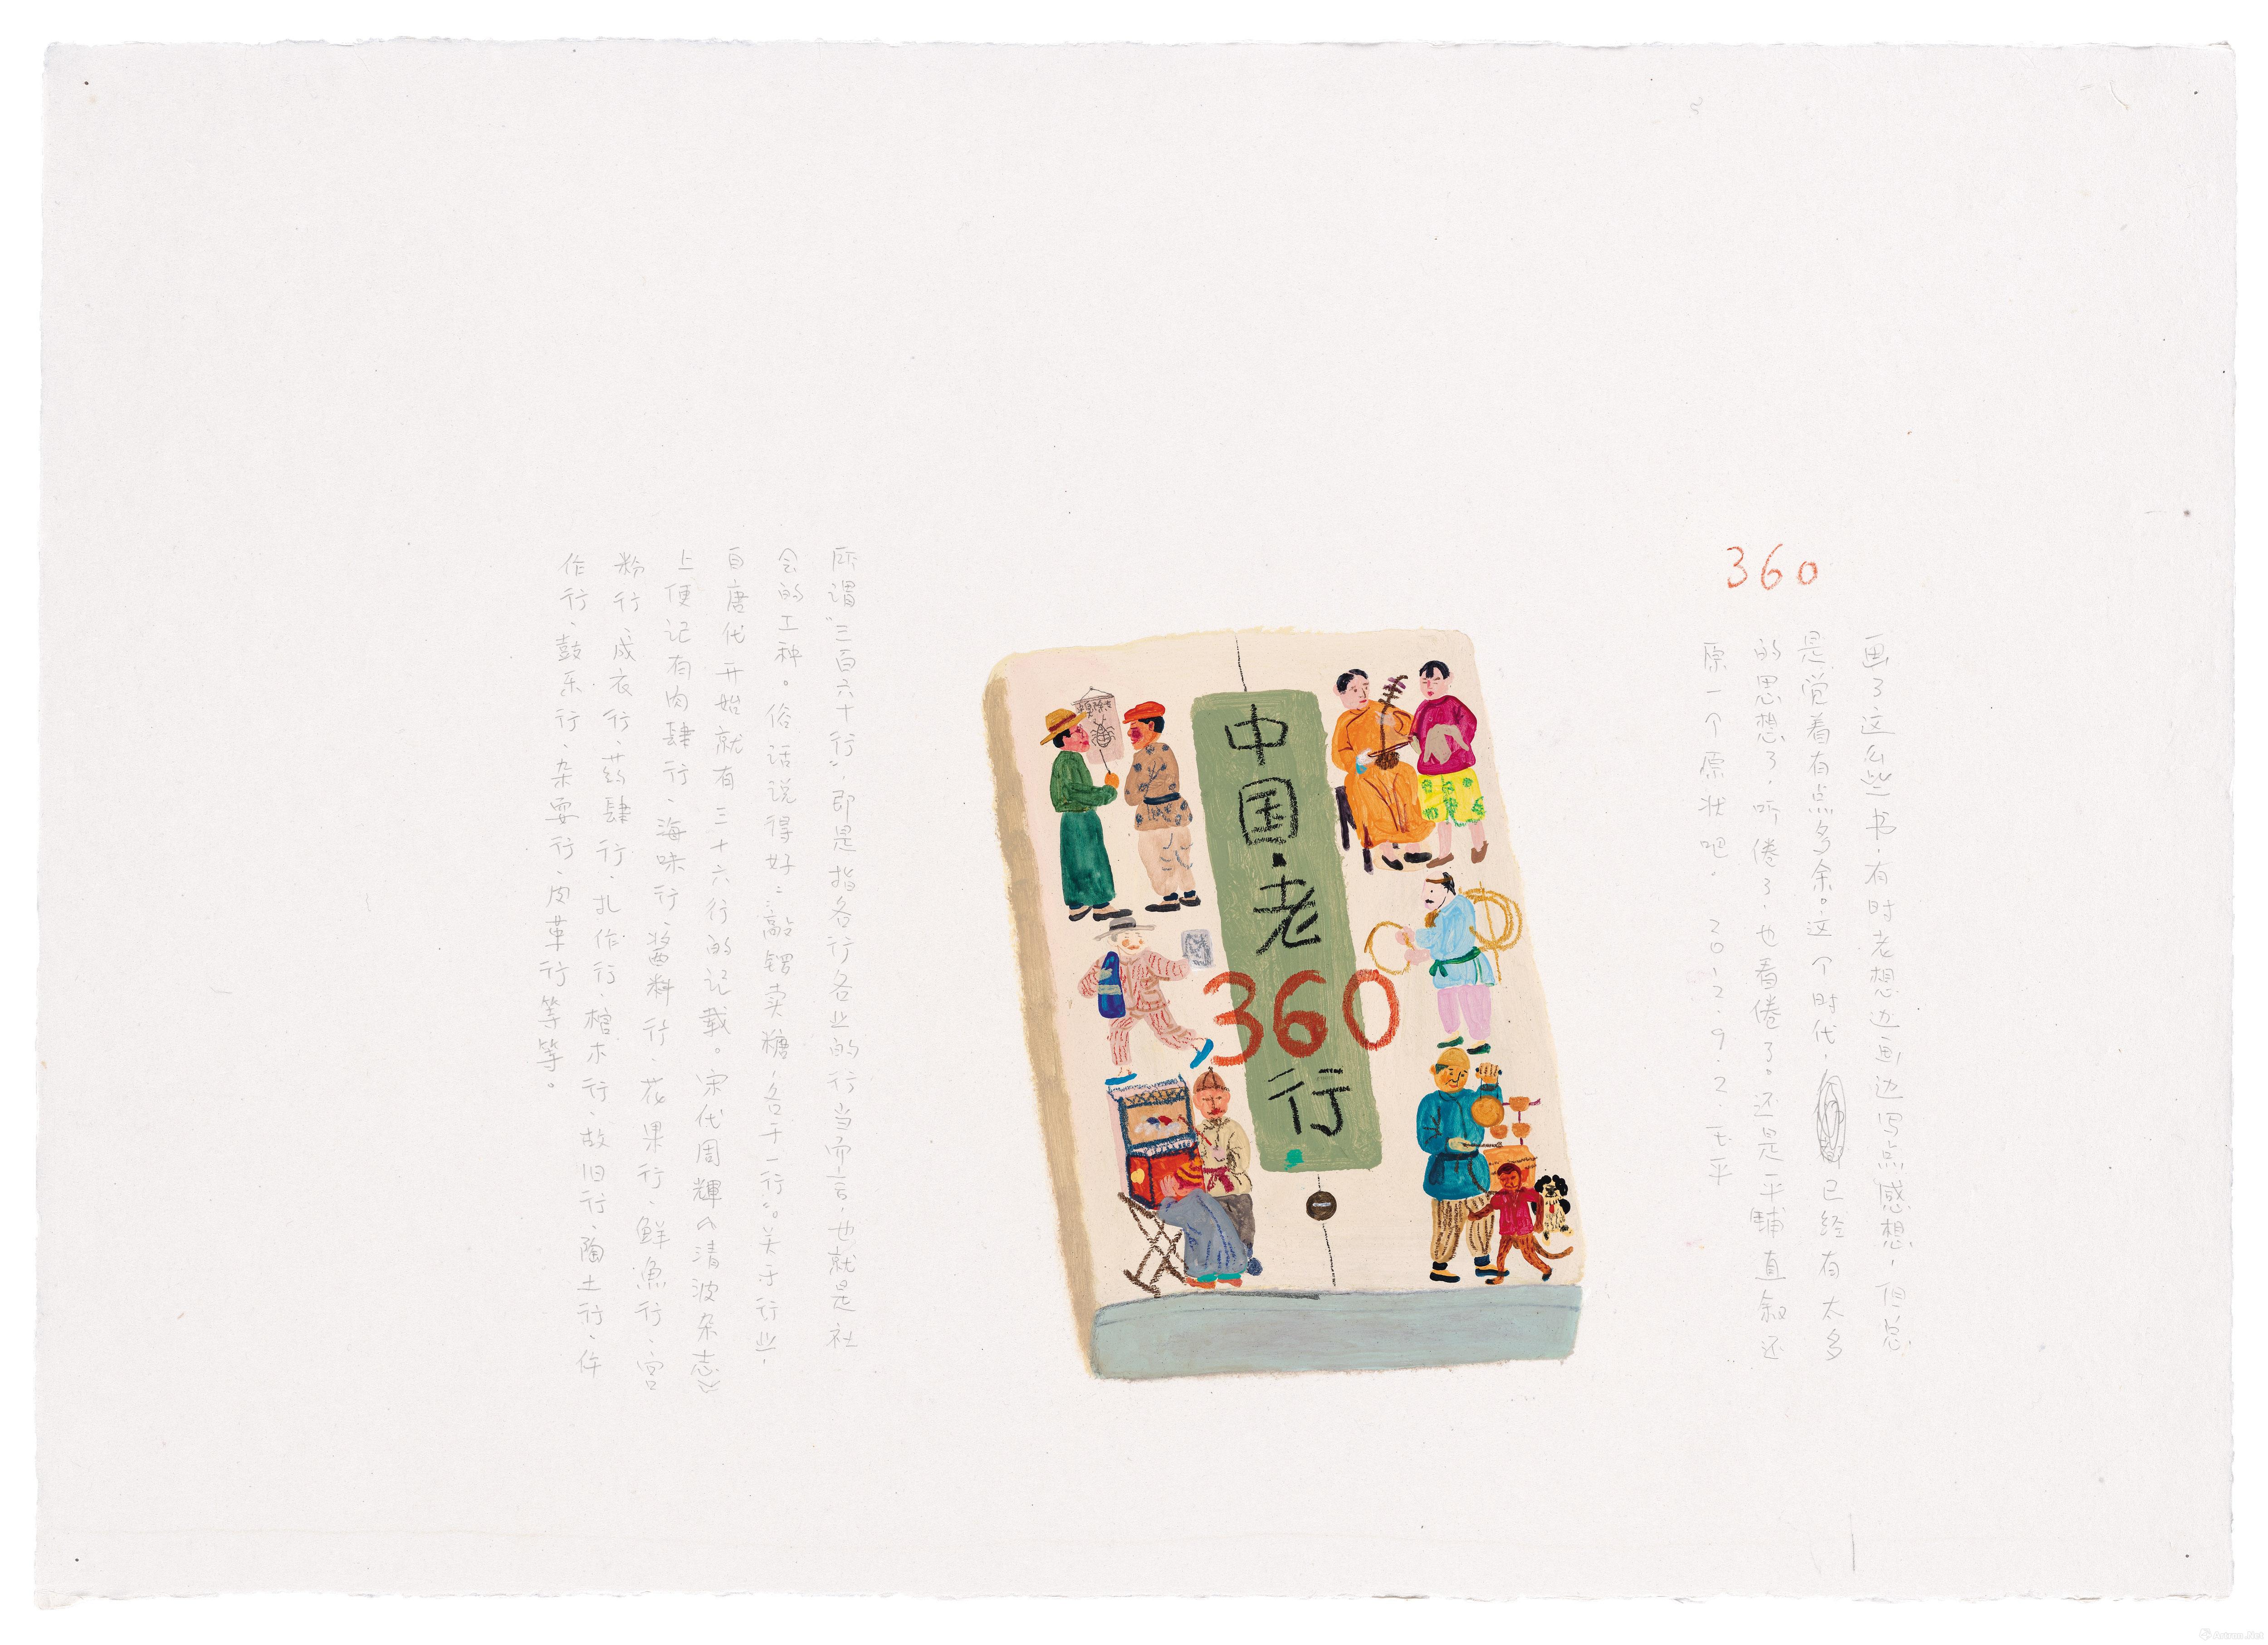 360
画了这么些书，有时老想边画边写点感想，但总
是觉着有点多余。这个时代，已经有太多
的思想了，听倦了，也看倦了。还是平铺直叙还
原一个原状吧。2012.9.2.
中国·老
360
行
所谓“三百六十行”，即是指各行各业的行当而言，也就是社
会的工种。俗话说得好：“敲锣卖糖，各干一行”。关于行业，
自唐代开始就有三十六行的记载。宋代周辉《清波杂志》
上便记有肉肆行、海味行、酱料行、花果行、鲜鱼行、宫
粉行、成衣行、药肆行、扎作行、棺木行、故旧行、陶土行、仵
作行、鼓乐行、杂耍行、皮革行等等。